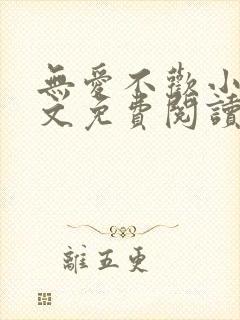 無愛不歡小
文免費閱讀
離五更